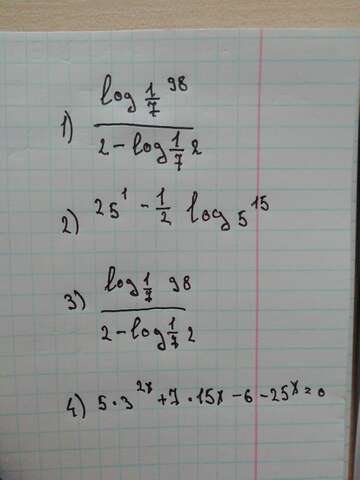 1) log 1/7 98 / 2 - log 1/7 2
2) 25^1 - 1/2 log 5^15
3) log 1/7 98 / 2 - log 1/7 2
4) 5 · 3^2x + 7 · 15x - 6 - 25^x = 0